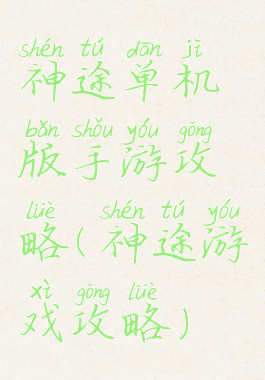 shén tú dān jī
神途单机
bǎn shǒu yóu gōng
版手游攻
lüè shén tú yóu
略(神途游
xì gōng lüè
戏攻略)